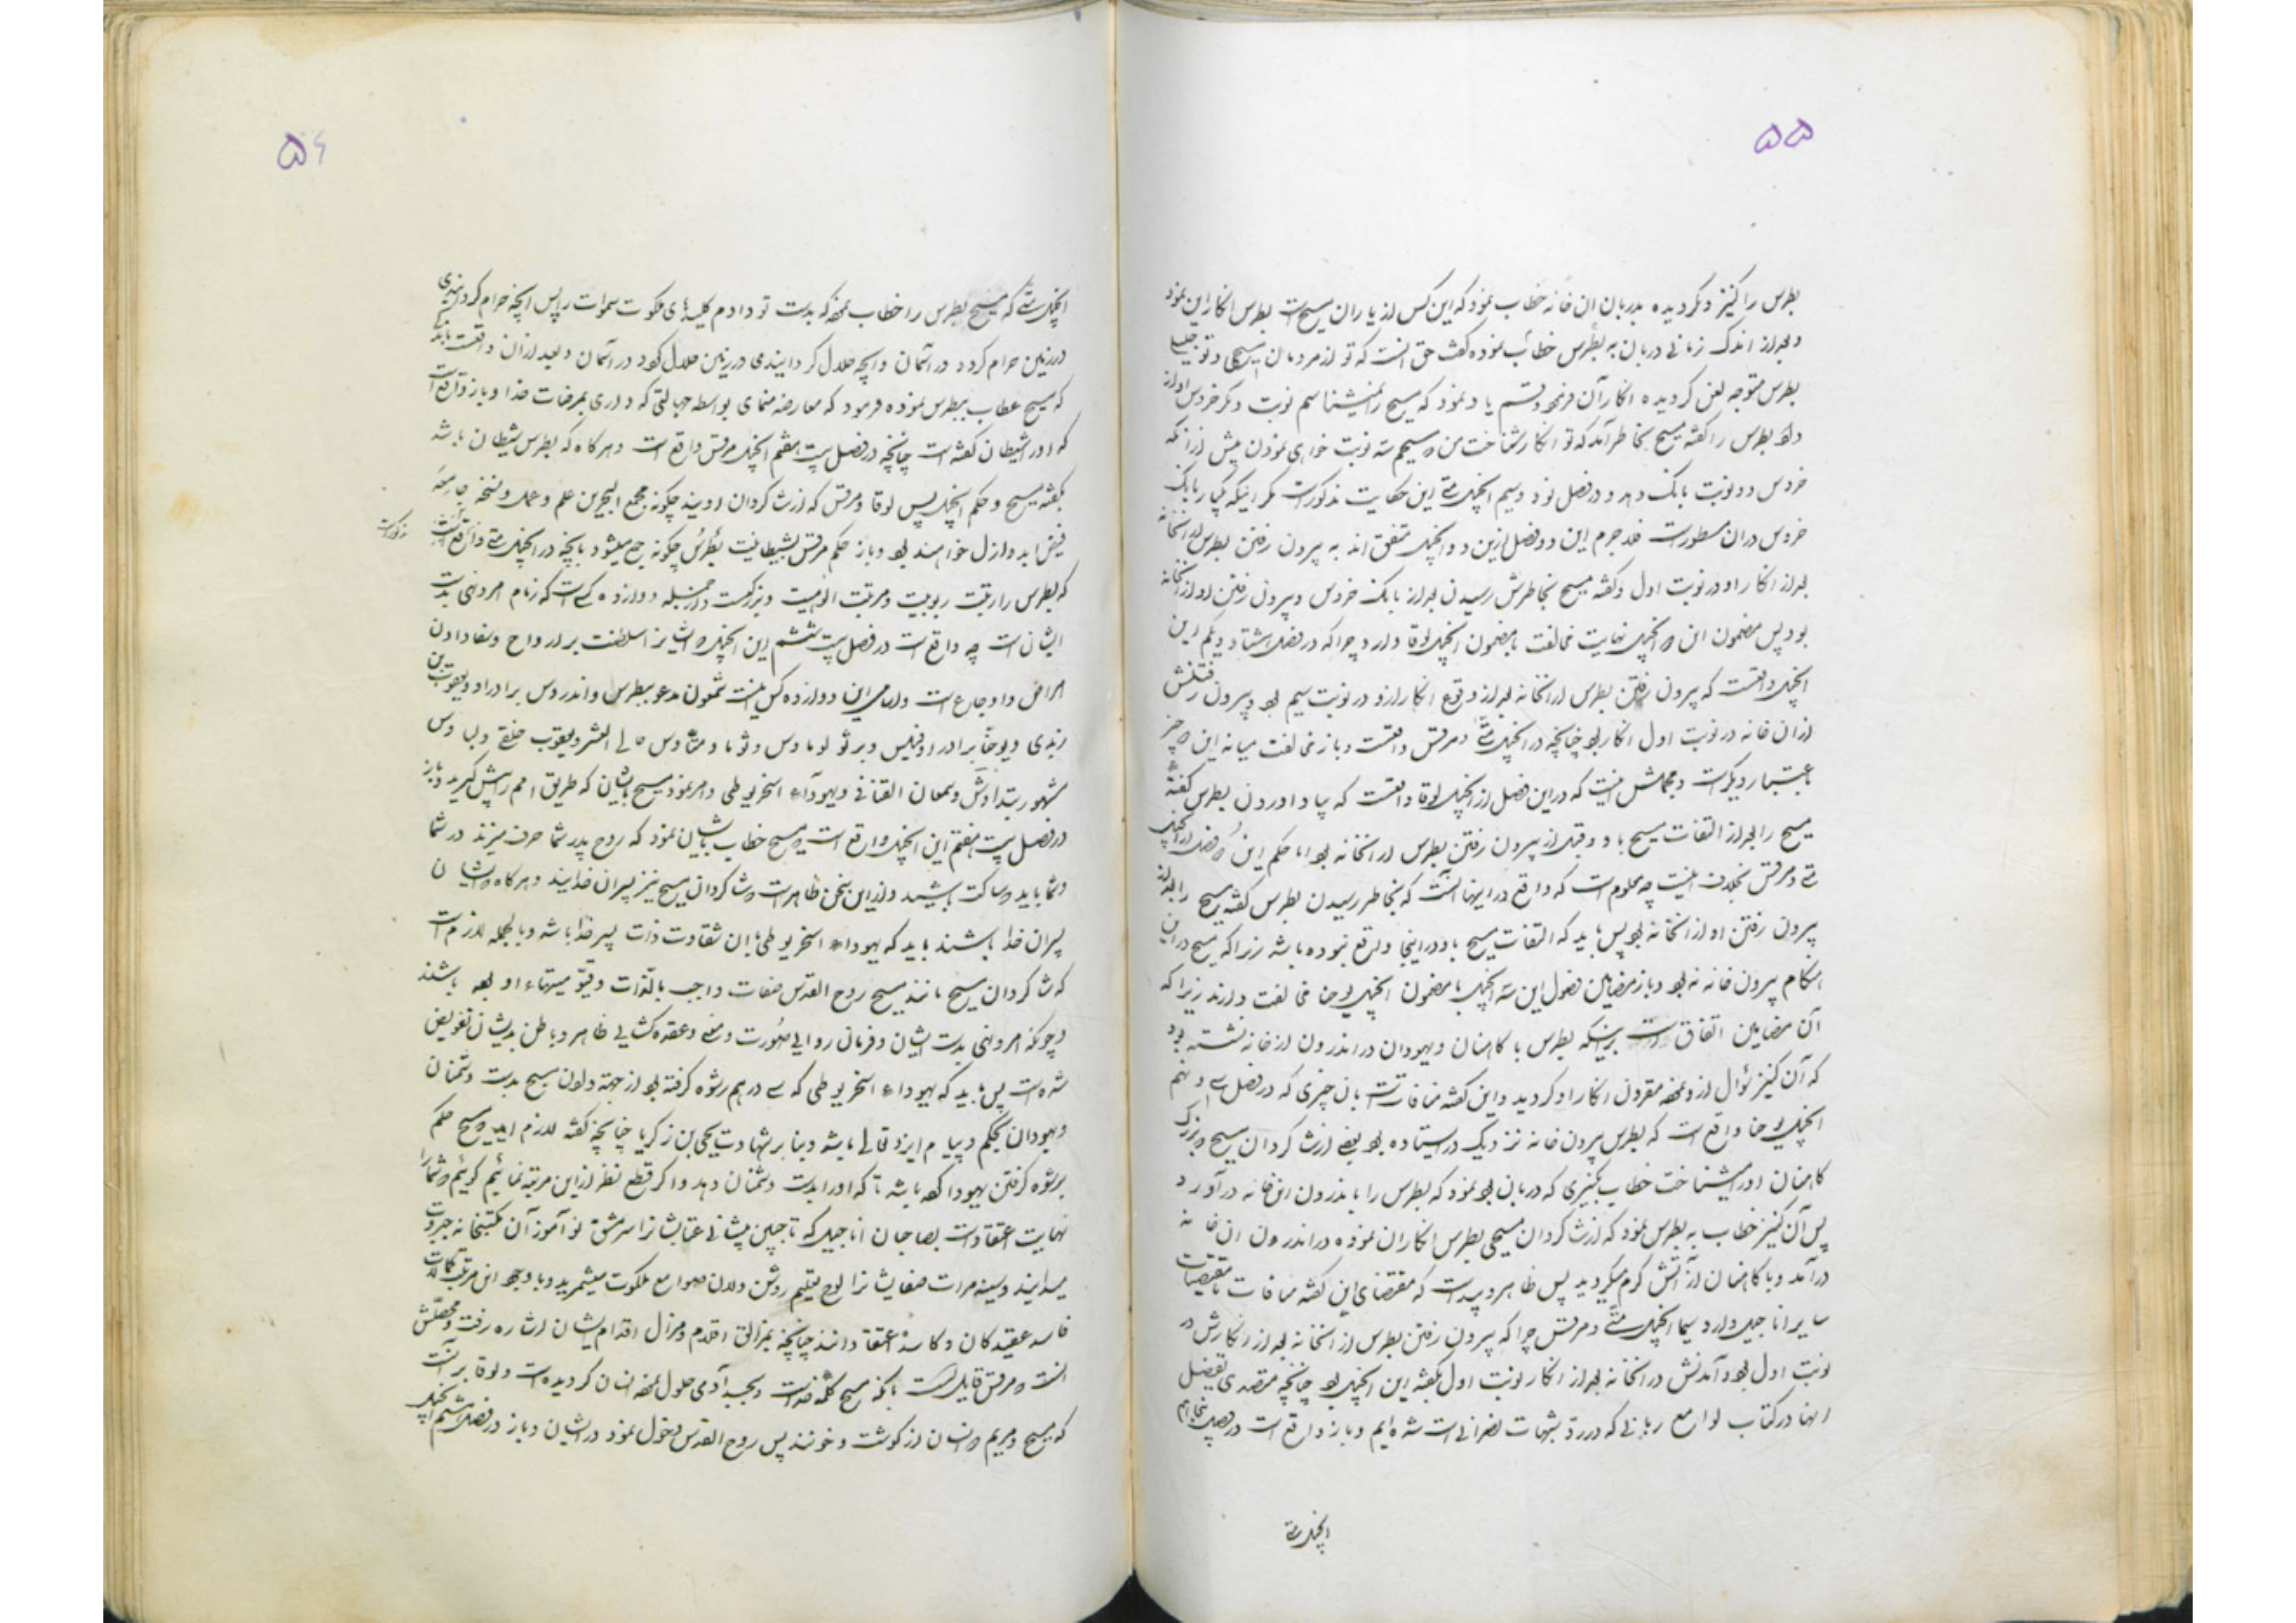 ۵۵
بطرس را کنیز دیگر دیده بدربان ان خانه خطاب نمود که این کس از یاران مسیح است بطرس انکار این نمود
و بعد از اندک زمانی دربان به بطرس خطاب نموده گفت حق انست که تو از مردمان مسیحی و تو جلیلی
بطرس متوجه لعن گردیده انکار آن فرموده و قسم یاد نمود که مسیح را نمیشناسم نوبت دیگر خروس اواز
داد بطرس را گفته مسیح بخاطر آمد که تو انکار شناخت من مسیحم سه نوبت خواهی نمودن پیش از آنکه
خروس دو نوبت بانک دهد و در فصل نود و سیم انجیل متی این حکایت مذکورست مگر اینکه یکبار بانک
خروس دران مسطورست فلاجرم این دو فصل ازین دو انجیل متفق اند به بیرون رفتن بطرس از انخانه
بعد از انکار او در نوبت اول و گفته مسیح بخاطرش رسیدن بعد از بانک خروس و بیرون رفتن او از انخانه
بود پس مضمون این دو انجیل نهایت مخالفت با مضمون انجیل لوقا دارد چرا که در فصل هشتاد و یکم این
انجیل واقعست که بیرون رفتن بطرس از انخانه بعد از وقوع انکار ازو در نوبت سیم بود و بیرون رفتنش
ازان خانه در نوبت اول انکار بود چنانچه در انجیل متی و مرقس واقعست و باز مخالفت میانه این دو چیز
باعتبار دیگرست و مجملش اینست که در این فصل از انجیل لوقا واقعست که بیاد اوردن بطرس گفته
مسیح را بعد از التفات مسیح باو و قبل از بیرون رفتن بطرس از انخانه بود اما حکم این دو فصل از انجیل
متی و مرقس بخلاف اینست چه معلوم است که واقع در اینها آنست که بخاطر رسیدن بطرس گفته مسیح را بعد از
بیرون رفتن او از انخانه بود پس باید که التفات مسیح باو در اینجا واقع نبوده باشد زیرا که مسیح در این
هنگام بیرون خانه نه بود و باز مضامین فصول این سه انجیل با مضمون انجیل یوحنا مخالفت دارند زیرا که
آن مضامین اتفاق است برینکه بطرس با کاهنان و یهودان در اندرون ازخانه نشسته بود
که آن کنیز سؤال ازو نموده مقرون انکار او گردید و این گفته منافاتست بان چیزی که در فصل سی و نهم
انجیل یوحنا واقع است که بطرس بیرون خانه نزدیک در استاده بود بعضی از شاگردان مسیح و بزرگ
کاهنان اورا میشناخت خطاب بکنیزی که دربان بود نمود که بطرس را باندرون این خانه در آورد
پس آن کنیز خطاب به بطرس نمود که از شاگردان مسیحی بطرس انکار ان نموده در اندرون ان خانه
درآمد و با کاهنان از آتش گرم میگردید پس ظاهر و پیداست که مقتضای این گفته منافات با مقتضیات
سایر اناجیل دارد سیما انجیل متی و مرقس چرا که بیرون رفتن بطرس از انخانه بعد از انکارش در
نوبت اول بود و آمدنش در انخانه بعد از انکار نوبت اول بگفته این انجیل بود چنانچه متصدی تفصیل
اینها در کتاب لوامع ربانی که در رد شبهات نصرانی است شده ایم و باز واقع است در فصل پنجاهم
انجیل متی
۵۶
انجیل متی که مسیح بطرس را خطاب نموده که بدست تو دادم کلیدهای ملکوت سموات را پس انچه حرام گردانیدی
در زمین حرام گردد در آسمان و انچه حلال گردانیدی در زمین حلال گردد در آسمان و بعد ازان واقعست بانکه
که مسیح عطاب ببطرس نموده فرمود که معارضه منمای بواسطه جهالتی که داری بمرضات خدا و باز واقع است
که اورا شیطان گفته است چنانچه در فصل بیست هفتم انجیل مرقس واقع است و هرگاه که بطرس شیطان باشد
بگفته مسیح و حکم انجیل پس لوقا و مرقس که از شاگردان اویند چگونه مجمع البحرین علم و عمل و نسخه جامعه
فیض ابد و ازل خواهند بود و باز حکم مرقس بشیطانیت بطرس چگونه جمع میشود بانچه در انجیل متی واقع است
مذکورست
که بطرس را رتبت ربوبیت و مرتبت الوهیت و بزرگیست و از جمله دوازده کس است که زمام امر و نهی بدست
ایشان است چه واقع است در فصل بیست ششم این انجیل که ایشانرا سلطنت بر ارواح و شفا دادن
امراض و اوجاع است و اسامی این دوازده کس اینست شمعون مدعو ببطرس و اندروس برادر او و یعقوب بن
زبدی و یوحنا برادر او فیلبس و برثولوماوس و ثوما و متاوس ... العشر و یعقوب حلفی و لباوس
مشهور بتداوس و سمعان القنانی و یهوداء اسخریوطی و امر نمود مسیح بایشان که طریق امم را پیش نگیرید و باز
در فصل بیست هفتم این انجیل واقع است که مسیح خطاب بایشان نمود که روح پدر شما حرف میزند در شما
و شما باید ساکت باشید و ازین سخن ظاهرست که شاگردان مسیح نیز پسران خدایند و هرگاه ایشان
پسران خدا باشند باید که یهوداء اسخریوطی با ان شقاوت ذات پسر خدا باشد و بالجمله لازم است
که شاگردان مسیح مانند مسیح روح القدس صفات واجب بالذات و قیّومیتهاء او بوده باشند
و چونکه امر و نهی بدست ایشان و فرمان روایی صورت و معنی و عقده کشایی ظاهر و باطن بدیشان تفویض
شده است پس باید که یهوداء اسخریوطی که سی درهم رشوه گرفته بود از جهة دادن مسیح بدست دشمنان
و یهودان بحکم و پیام ایزد تعالی باشد و بنابر شهادت یحیی بن زکریا چنانچه گفته لازم اید که مسیح حکم
برشوه گرفتن یهودا کرده باشد تا که اورا بدست دشمنان دهد و اگر قطع نظر ازین مرتبه نمائیم گوئیم که شما را
نهایت اعتقادست بصاحبان اناجیل که تا جبین پیشانی عتابشانرا سرمشق نوآموز آن مکتبخانه جبروت
میدانید و سینه مرات صفایشانرا لوح تعلیم روشن دلان صوامع ملکوت میشمرید و با وجود این مرتبه کمالات
فاسد عقیدگان و کاسد اعتقادانند چنانچه بمزالق اقدم و مزال اقدام ایشان اشاره رفت و محصلش
انست که مرقس قایل است بانکه مسیح کلمه خداست و بجسد آدمی حلول نموده انسان گردیده است و لوقا برآنست
که مسیح و مریم دو انسان از گوشت و خونند پس روح القدس دخول نمود در ایشان و باز در فصل هشتم انجیل